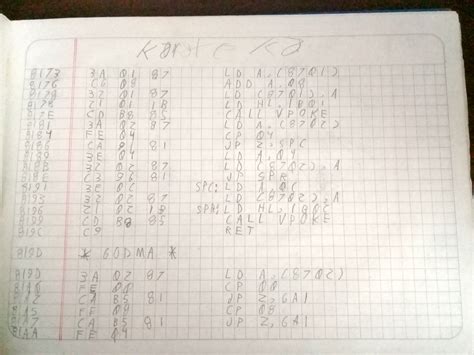 Karate Ka
8173 3A 01 87 LD A,(8701)
8176 C6 08 ADD A,08
8178 32 01 87 LD (8701),A
817B 21 01 1B LD HL,1B01
817E CD B8 85 CALL VPOKE
8181 3A 02 87 LD A,(8702)
8184 FE 04 CP 04
8186 CA 91 81 JP Z,SPC
8189 3E 04 LD A,04
818B 32 02 87 LD (8702),A
818E C3 96 81 JP SPR
8191 3E 0C SPC: LD A,0C
8193 32 02 87 LD (8702),A
8196 21 02 1B SPR: LD HL,1B02
8199 CD B8 85 CALL VPOKE
819C C9 RET
819D * GODMA *
819D 3A 02 87 LD A,(8702)
81A0 FE 00 CP 00
81A2 CA B5 81 JP Z,GA1
81A5 FE 08 CP 08
81A7 CA B5 81 JP Z,GA1
81AA FE 04